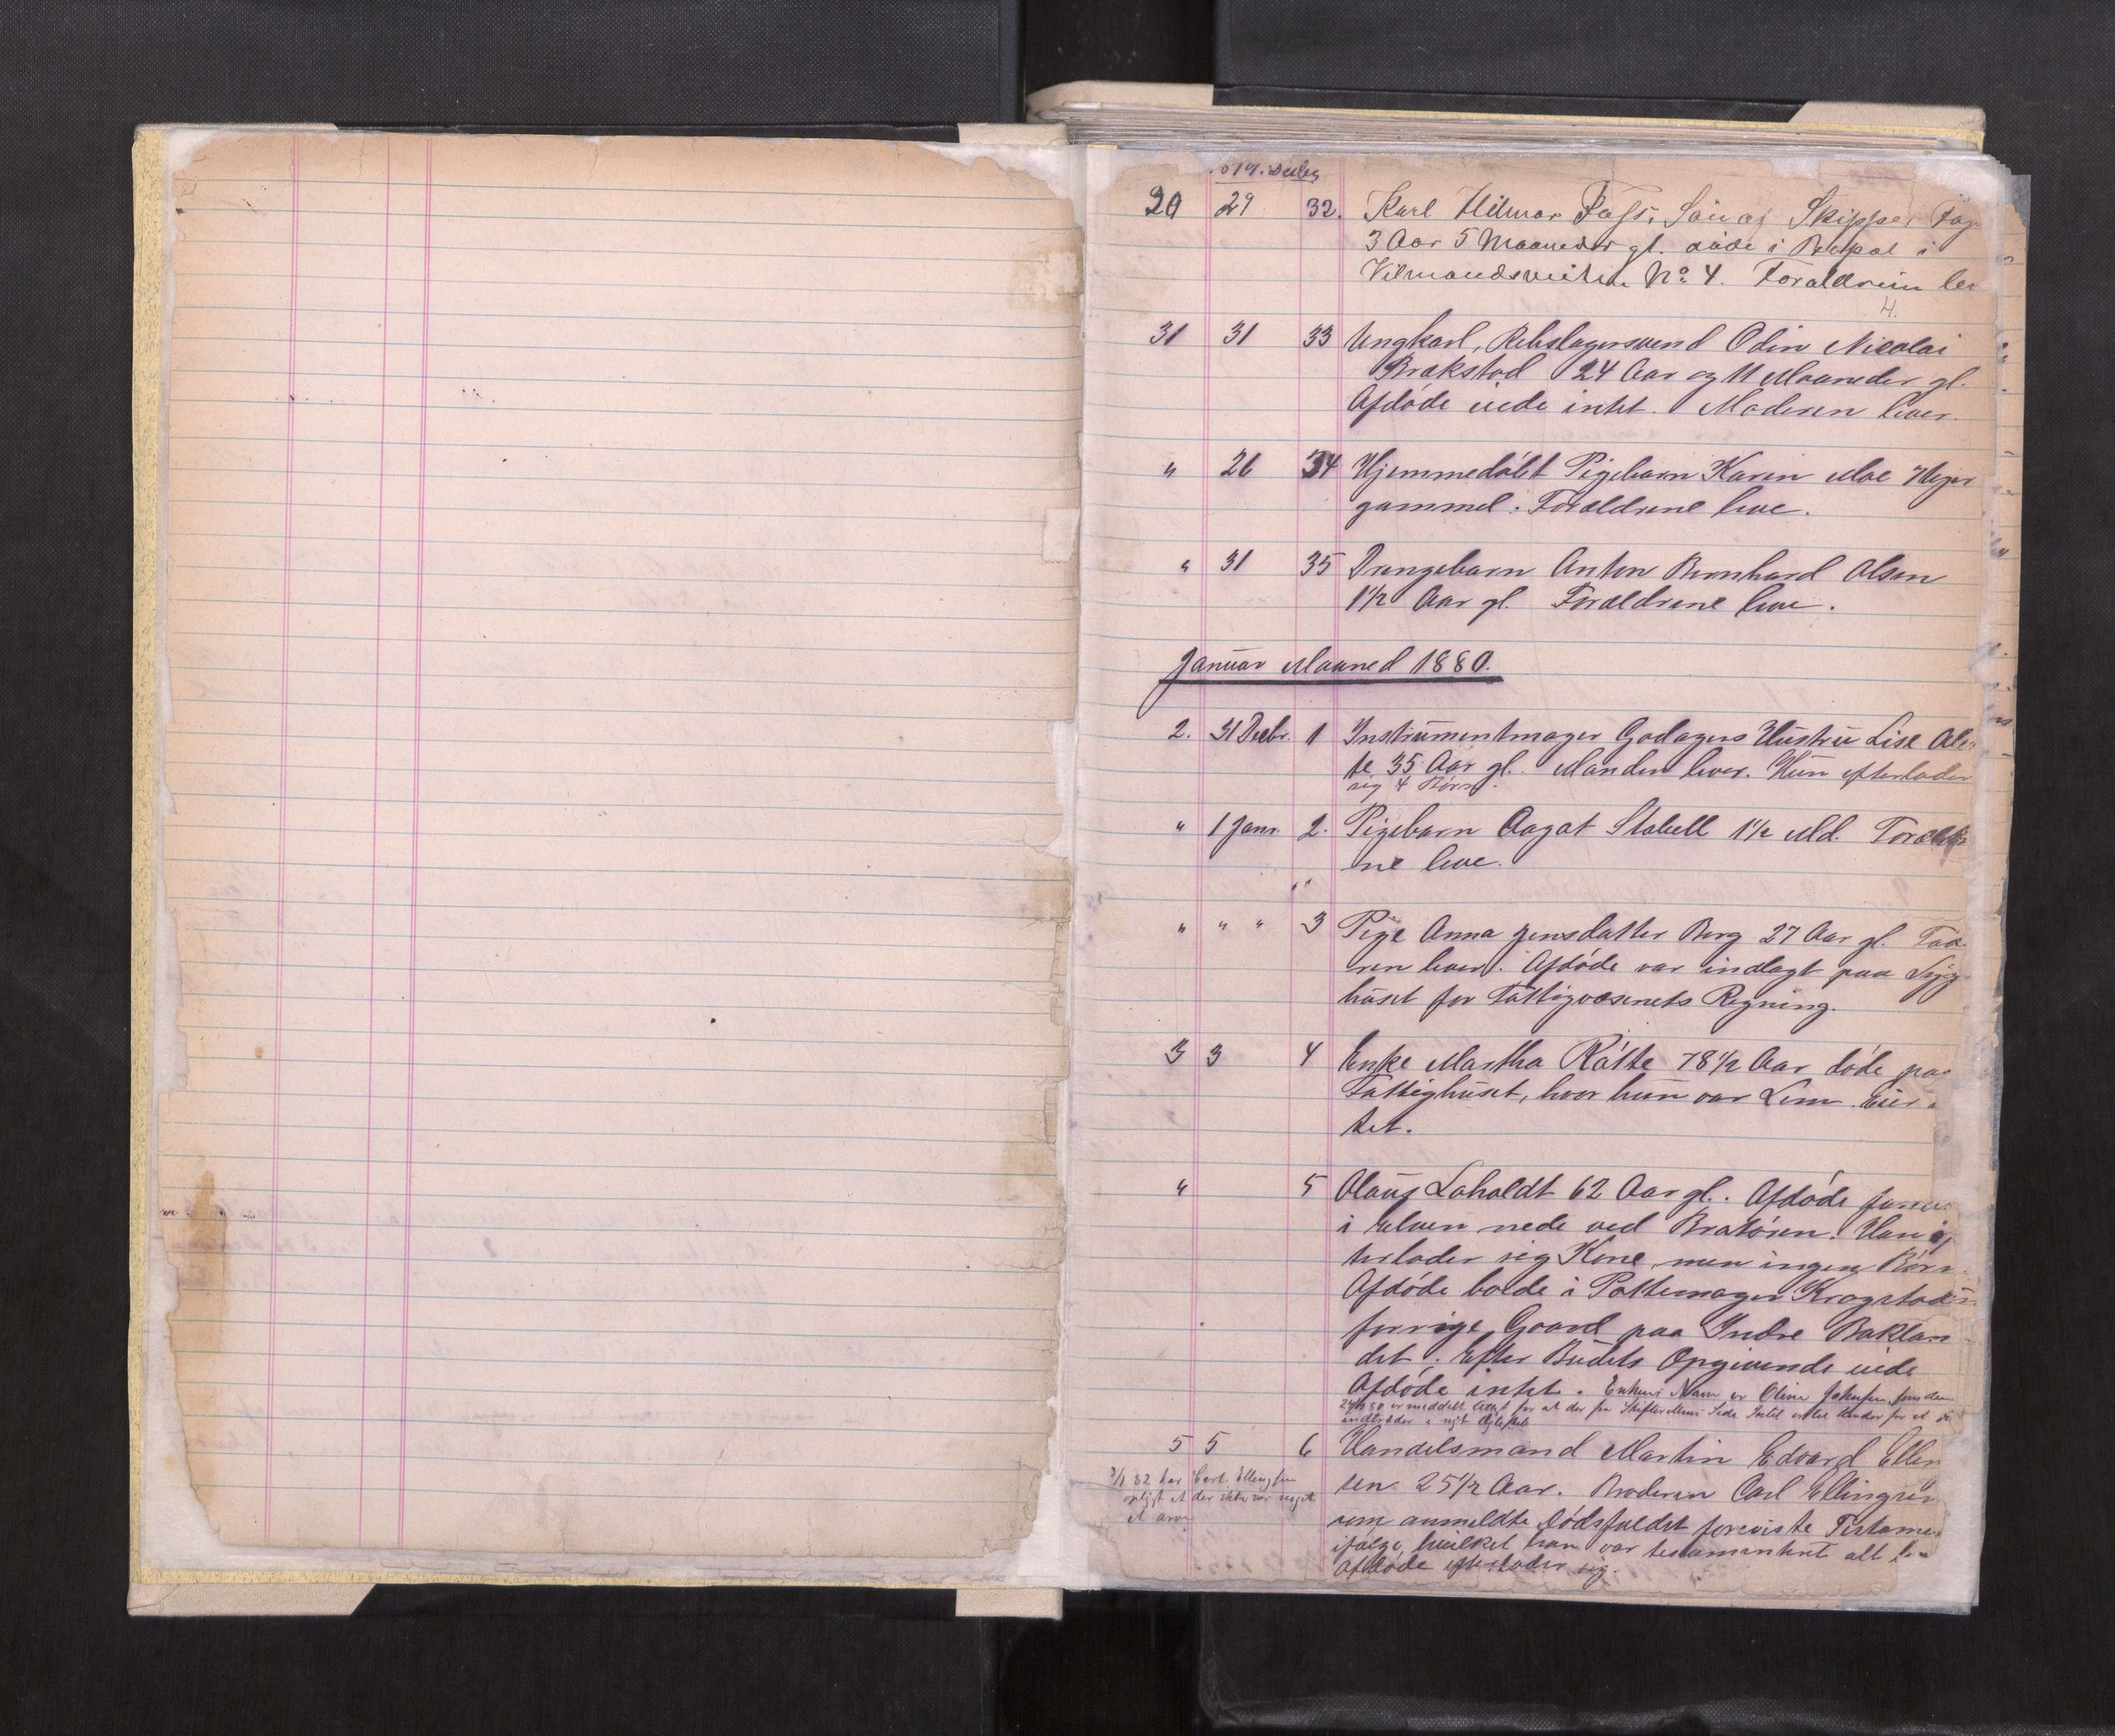 29 32. Karl Hilmar Søn af Skipper
3 Aar 5 Maaneder gl. døde i i
No 4. Forældrene
4.
31 31 33 Ungkarl, Rebslagersvend Odin Nicolai
Brækstad 24 Aar og 11 Maaneder gl.
Afdøde eiede intet. Moderen lever.
" 26 34 Hjemmedøbt Pigebarn Karen Moe
gammel. Forældrene leve.
" 31 35 Drengebarn Anton Bernhard Olsen
1 1/2 Aar gl. Forældrene leve.
Januar Maaned 1880.
2. 31 Decbr. 1 Instrumentmager Godagers Hustru Lise
te 35 Aar gl. Manden lever. Hun efterlader
sig 4 Børn.
" 1 Janr. 2. Pigebarn Aagot Stabell 1 1/2 Md.
ne leve.
" " " 3 Pige Anna Jensdatter Berg 27 Aar gl.
ren lever. Afdøde var indlagt paa Syg
huset for Fattigvæsenets Regning.
3 3 4 Enke Martha Rätte 78 1/2 Aar døde paa
Fattighuset, hvor hun var Lem. Eier
tet.
" 5 Olaus Loholdt 62 Aar gl. Afdøde
i Elven nede ved Bratøren. Han ef
terlader sig Kone, men ingen Børn.
Afdøde boede i Pottemager Krogstads
forrige Gaard paa Indre Baklan
det. Efter Budets Opgivende eiede
Afdøde intet. Enkens Navn er Oline
er meddelt Attest for at der fra Skifterettens Side Intet er til Hinder for at
indtræder i nyt Ægteskab
5 5 6 Handelsmand Martin Edvard Ellin
sen 25 1/2 Aar. Broderen Carl Ellingsen
som anmeldte Dødsfaldet foreviste Testamen
ifølge hvilket han var testamenteret alt
Afdøde efterlader sig.
82 har Carl Ellingsen
oplyst at der ikke var noget
at arve